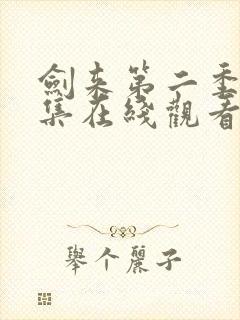 劍来第二季
集在綫觀看
舉个麗子